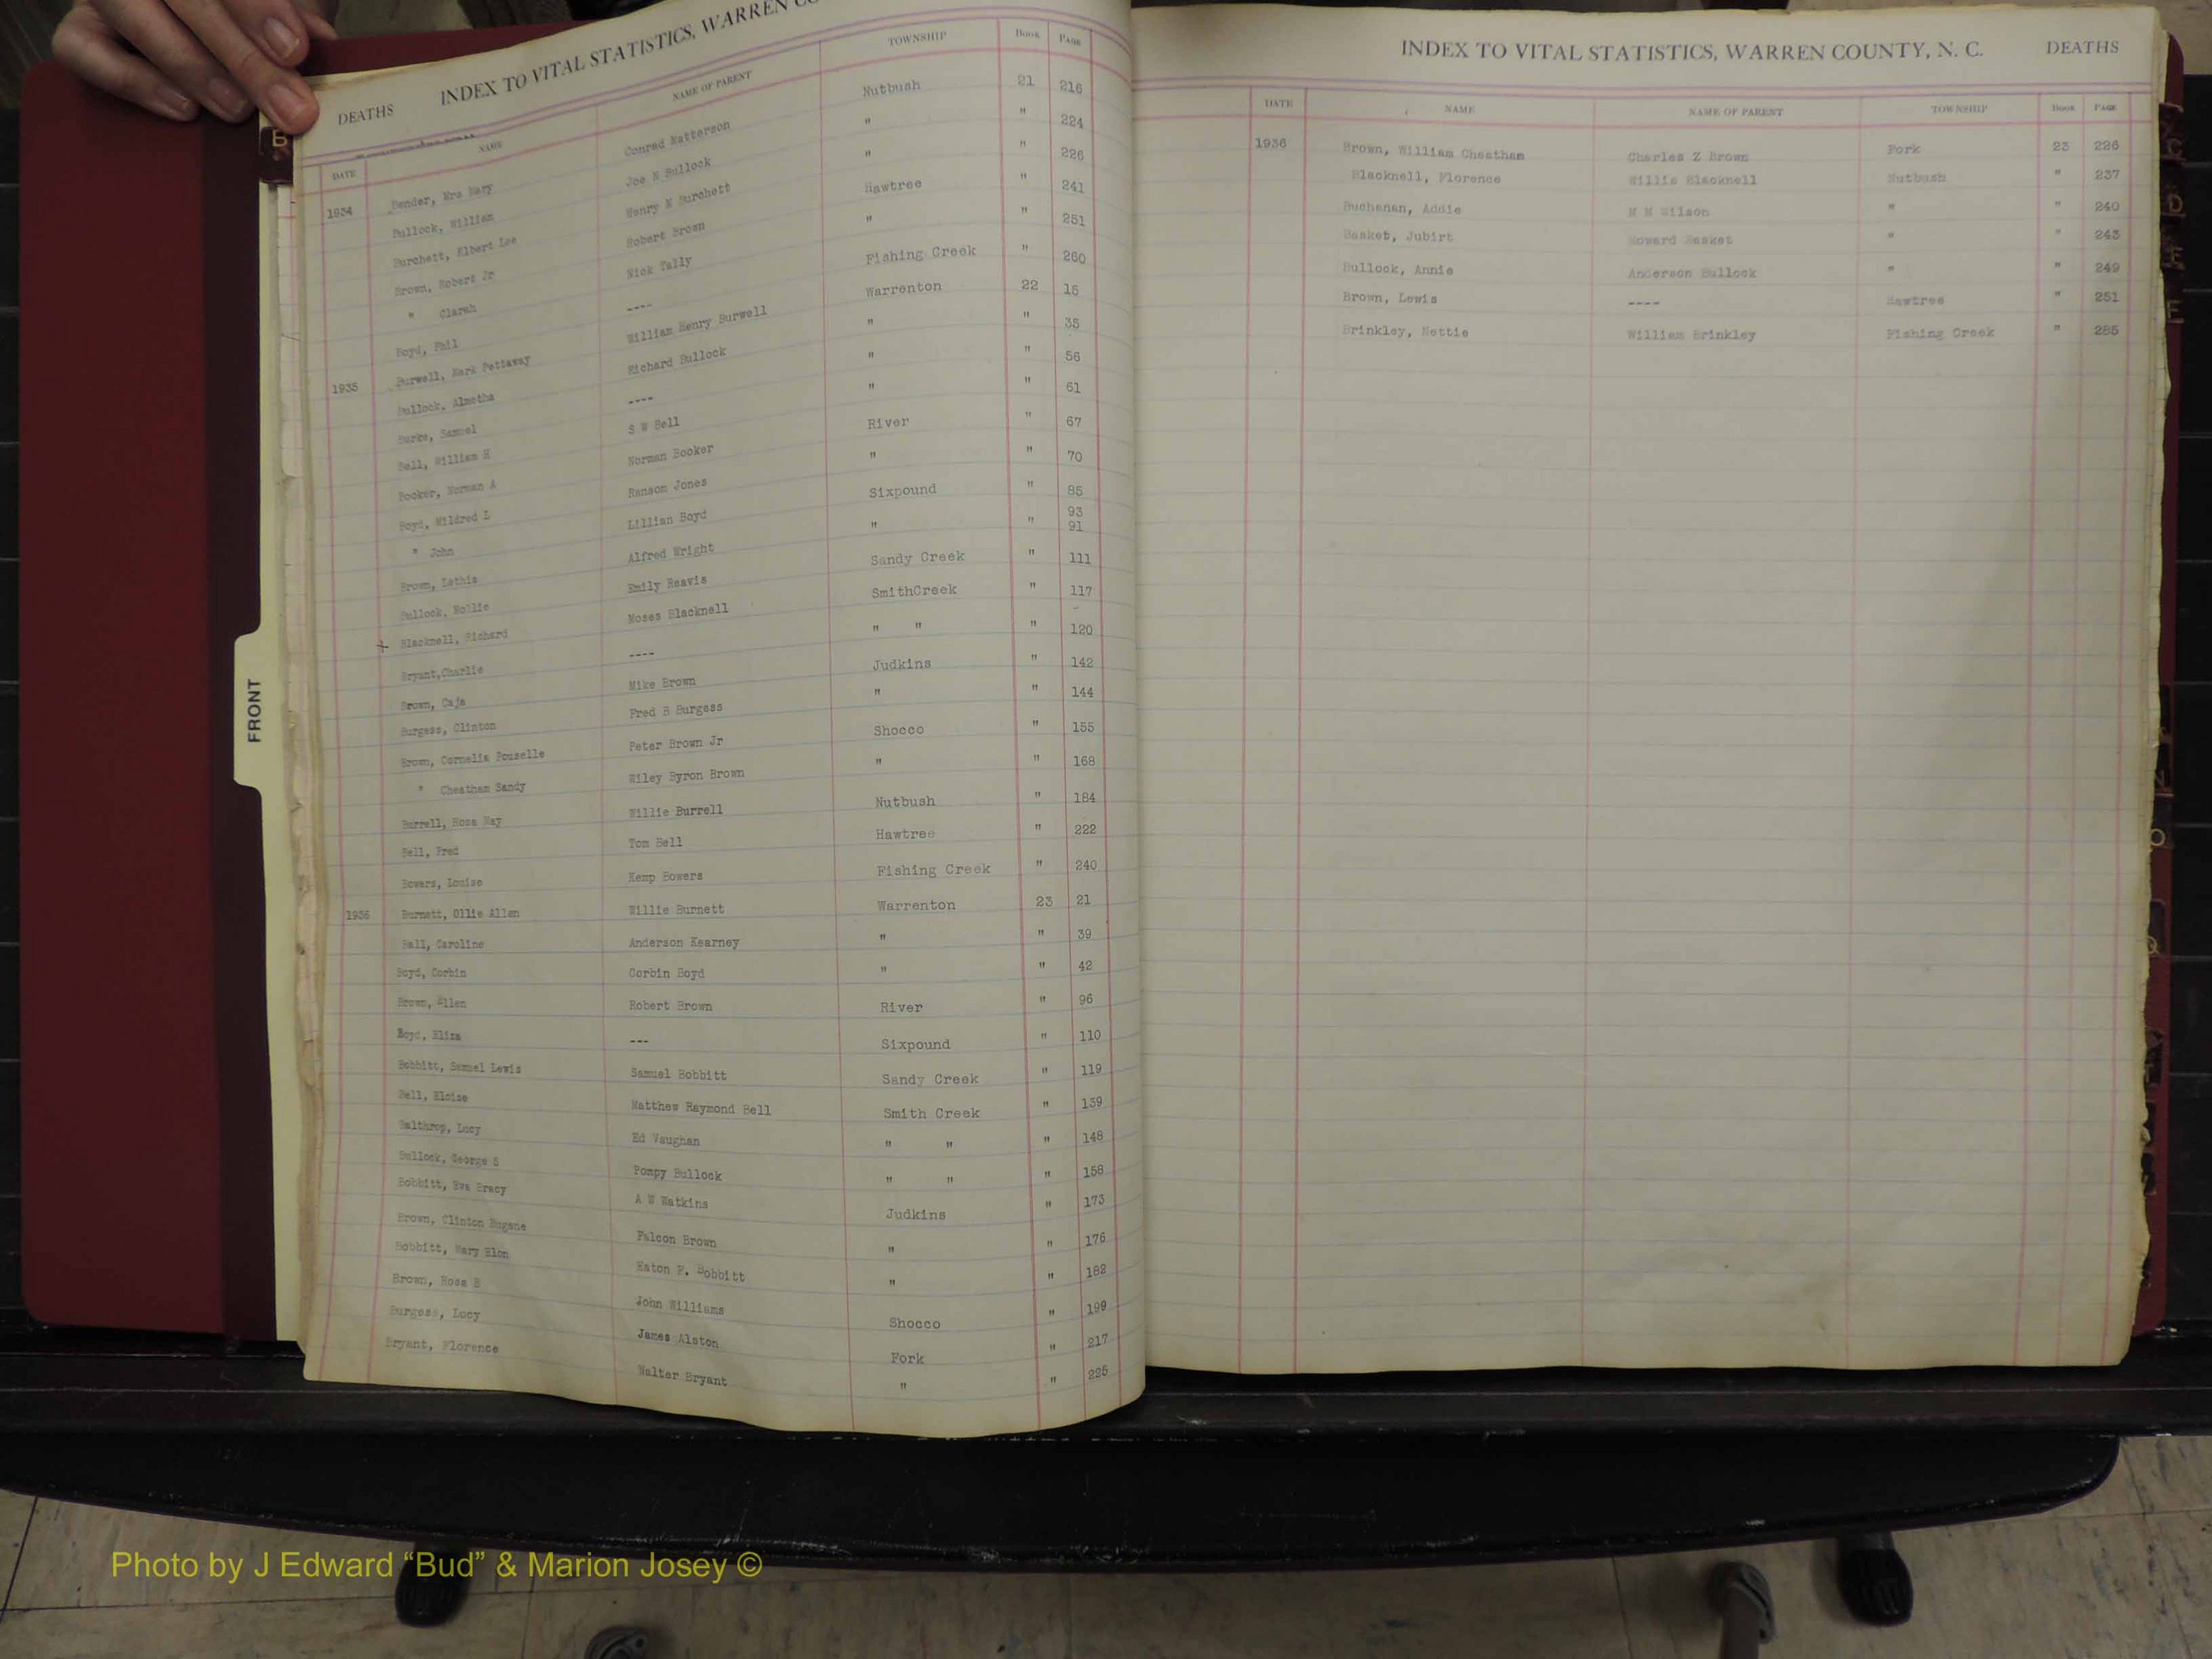 DEATHS INDEX TO VITAL STATISTICS, WARREN CO
DATE NAME NAME OF PARENT TOWNSHIP Book PAGE
1934 Bender, Mrs Mary Conrad Matterson Nutbush 21 216
Bullock, William Joe N Bullock " " 224
Burchett, Elbert Lee Henry M Burchett " " 226
Brown, Robert Jr Robert Brown Hawtree " 241
" Clarah Nick Tally " " 251
Boyd, Phil ---- Fishing Creek " 260
1935 Burwell, Mark Pettaway William Henry Burwell Warrenton 22 16
Bullock, Almetha Richard Bullock " " 35
Burke, Samuel ---- " " 56
Bell, William H S W Bell " " 61
Booker, Norman A Norman Booker River " 67
Boyd, Mildred Ranson Jones " " 70
" John Lillian Boyd Sixpound " 85
Brown, Lethia Alfred Wright " " 93 91
Bullock, Hollie Emily Reavis Sandy Creek " 111
Blacknell, Richard Moses Blacknell SmithCreek " 117
Bryant,Charlie ---- " " " 120
Brown, Caja Mike Brown Judkins " 142
Burgess, Clinton Fred B Burgess " " 144
Brown, Cornelia Pouselle Peter Brown Jr Shocco " 155
" Cheatham Sandy Wiley Byron Brown " " 168
Burrell, Rosa May Willie Burrell Nutbush " 184
Bell, Fred Tom Bell Hawtree " 222
Bowers, Louise Kemp Bowers Fishing Creek " 240
1936 Burnett, Ollie Allen Willie Burnett Warrenton 23 21
Ball, Caroline Anderson Kearney " " 39
Boyd, Corbin Corbin Boyd " " 42
Brown, Allen Robert Brown River " 96
Boyd, Eliza --- Sixpound " 110
Bobbitt, Samuel Lewis Samuel Bobbitt Sandy Creek " 119
Bell, Eloise Matthew Raymond Bell Smith Creek " 139
Balthrop, Lucy Ed Vaughan " " " 148
Bullock, George S Pompy Bullock " " " 158
Bobbitt, Eva Bracy A W Watkins Judkins " 173
Brown, Clinton Eugene Falcon Brown " " 176
Bobbitt, Mary Elon Eaton F. Bobbitt " " 182
Brown, Rosa B John Williams Shocco " 199
Burgess, Lucy James Alston Fork " 217
Bryant, Florence Walter Bryant " " 225
INDEX TO VITAL STATISTICS, WARREN COUNTY, N. C. DEATHS
DATE NAME NAME OF PARENT TOWNSHIP Book PAGE
1936 Brown, William Cheatham Charles Z Brown Fork 23 226
Blacknell, Florence Willis Blacknell Nutbush " 237
Buchanan, Addie M M Wilson " " 240
Basket, Jubirt Howard Basket " " 243
Bullock, Annie Anderson Bullock " " 249
Brown, Lewis ---- Hawtree " 251
Brinkley, Nettie William Brinkley Fishing Creek " 285
B
FRONT
Photo by J Edward “Bud” & Marion Josey ©